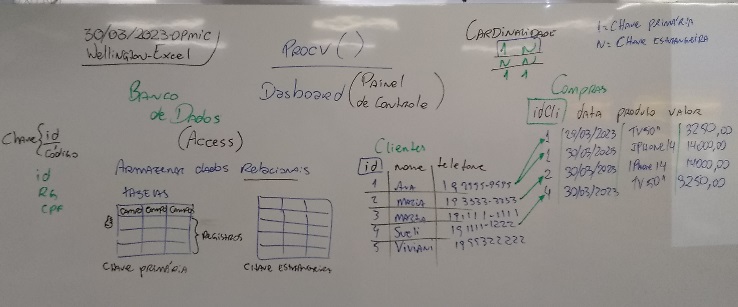 30/03/2023-OPmic
Wellington-Excel
PROCV()
Dasboard (Painel de Controle)
CARDINALIDADE
1 N
N N
1 1
1 = CHAVE PRIMÁRIA
N = CHAVE ESTRANGEIRA
BANCO
de DADOS
(Access)
CHAVE { id
CÓDIGO
id
RG
CPF
ARMAZENAR DADOS RELACIONAIS
TABELAS
CAMPO CAMPO CAMPO
REGISTROS
CHAVE PRIMÁRIA
CHAVE ESTRANGEIRA
Clientes
id nome telefone
1 ANA
2 MARIA
3
4 Sueli 191111-1222
5 VIVIANI 1955322222
Compras
idCli data produto valor
1 25/03/2023 TV50" 3250,00
1 30/03/2023 IPHONE14 14000,00
2 30/03/2023 IPHONE14 14000,00
4 30/03/2023 TV50" 3250,00